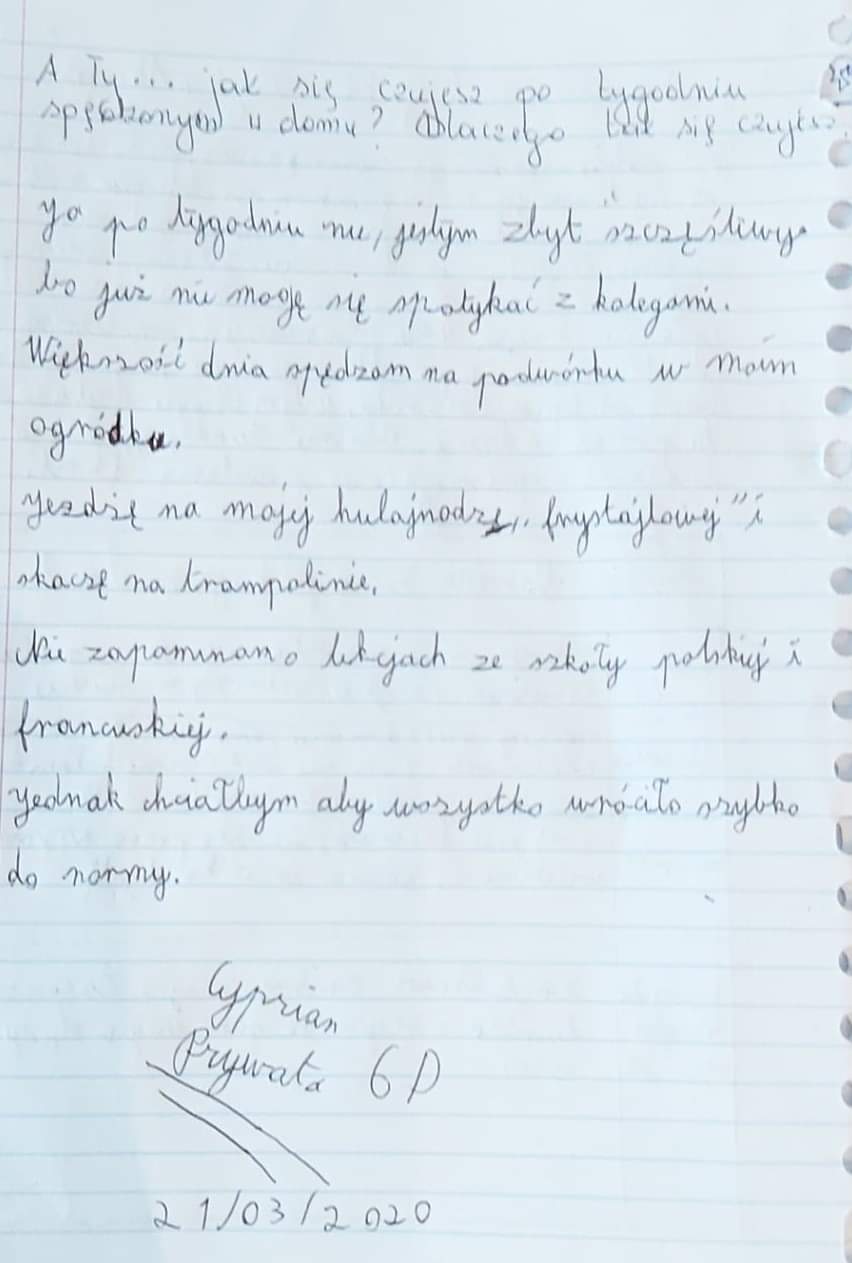 A Ty... jak się czujesz po tygodniu
spędzonym w domu? Dlaczego tak się czujesz.
Ja po tygodniu nie, jestem zbyt szczęśliwy
bo już nie mogę się spotykać z kolegami.
Większość dnia spędzam na podwórku w moim
ogródku.
Jezdzię na mojej hulajnodze,, frystajlowej" i
skaczę na trampolinie.
Nie zapominam o lekcjach ze szkoły polskiej i
francuskiej.
Jednak chciałbym aby wszystko wróciło szybko
do normy.
Cyprian
Prywata 6D
21/03/2020